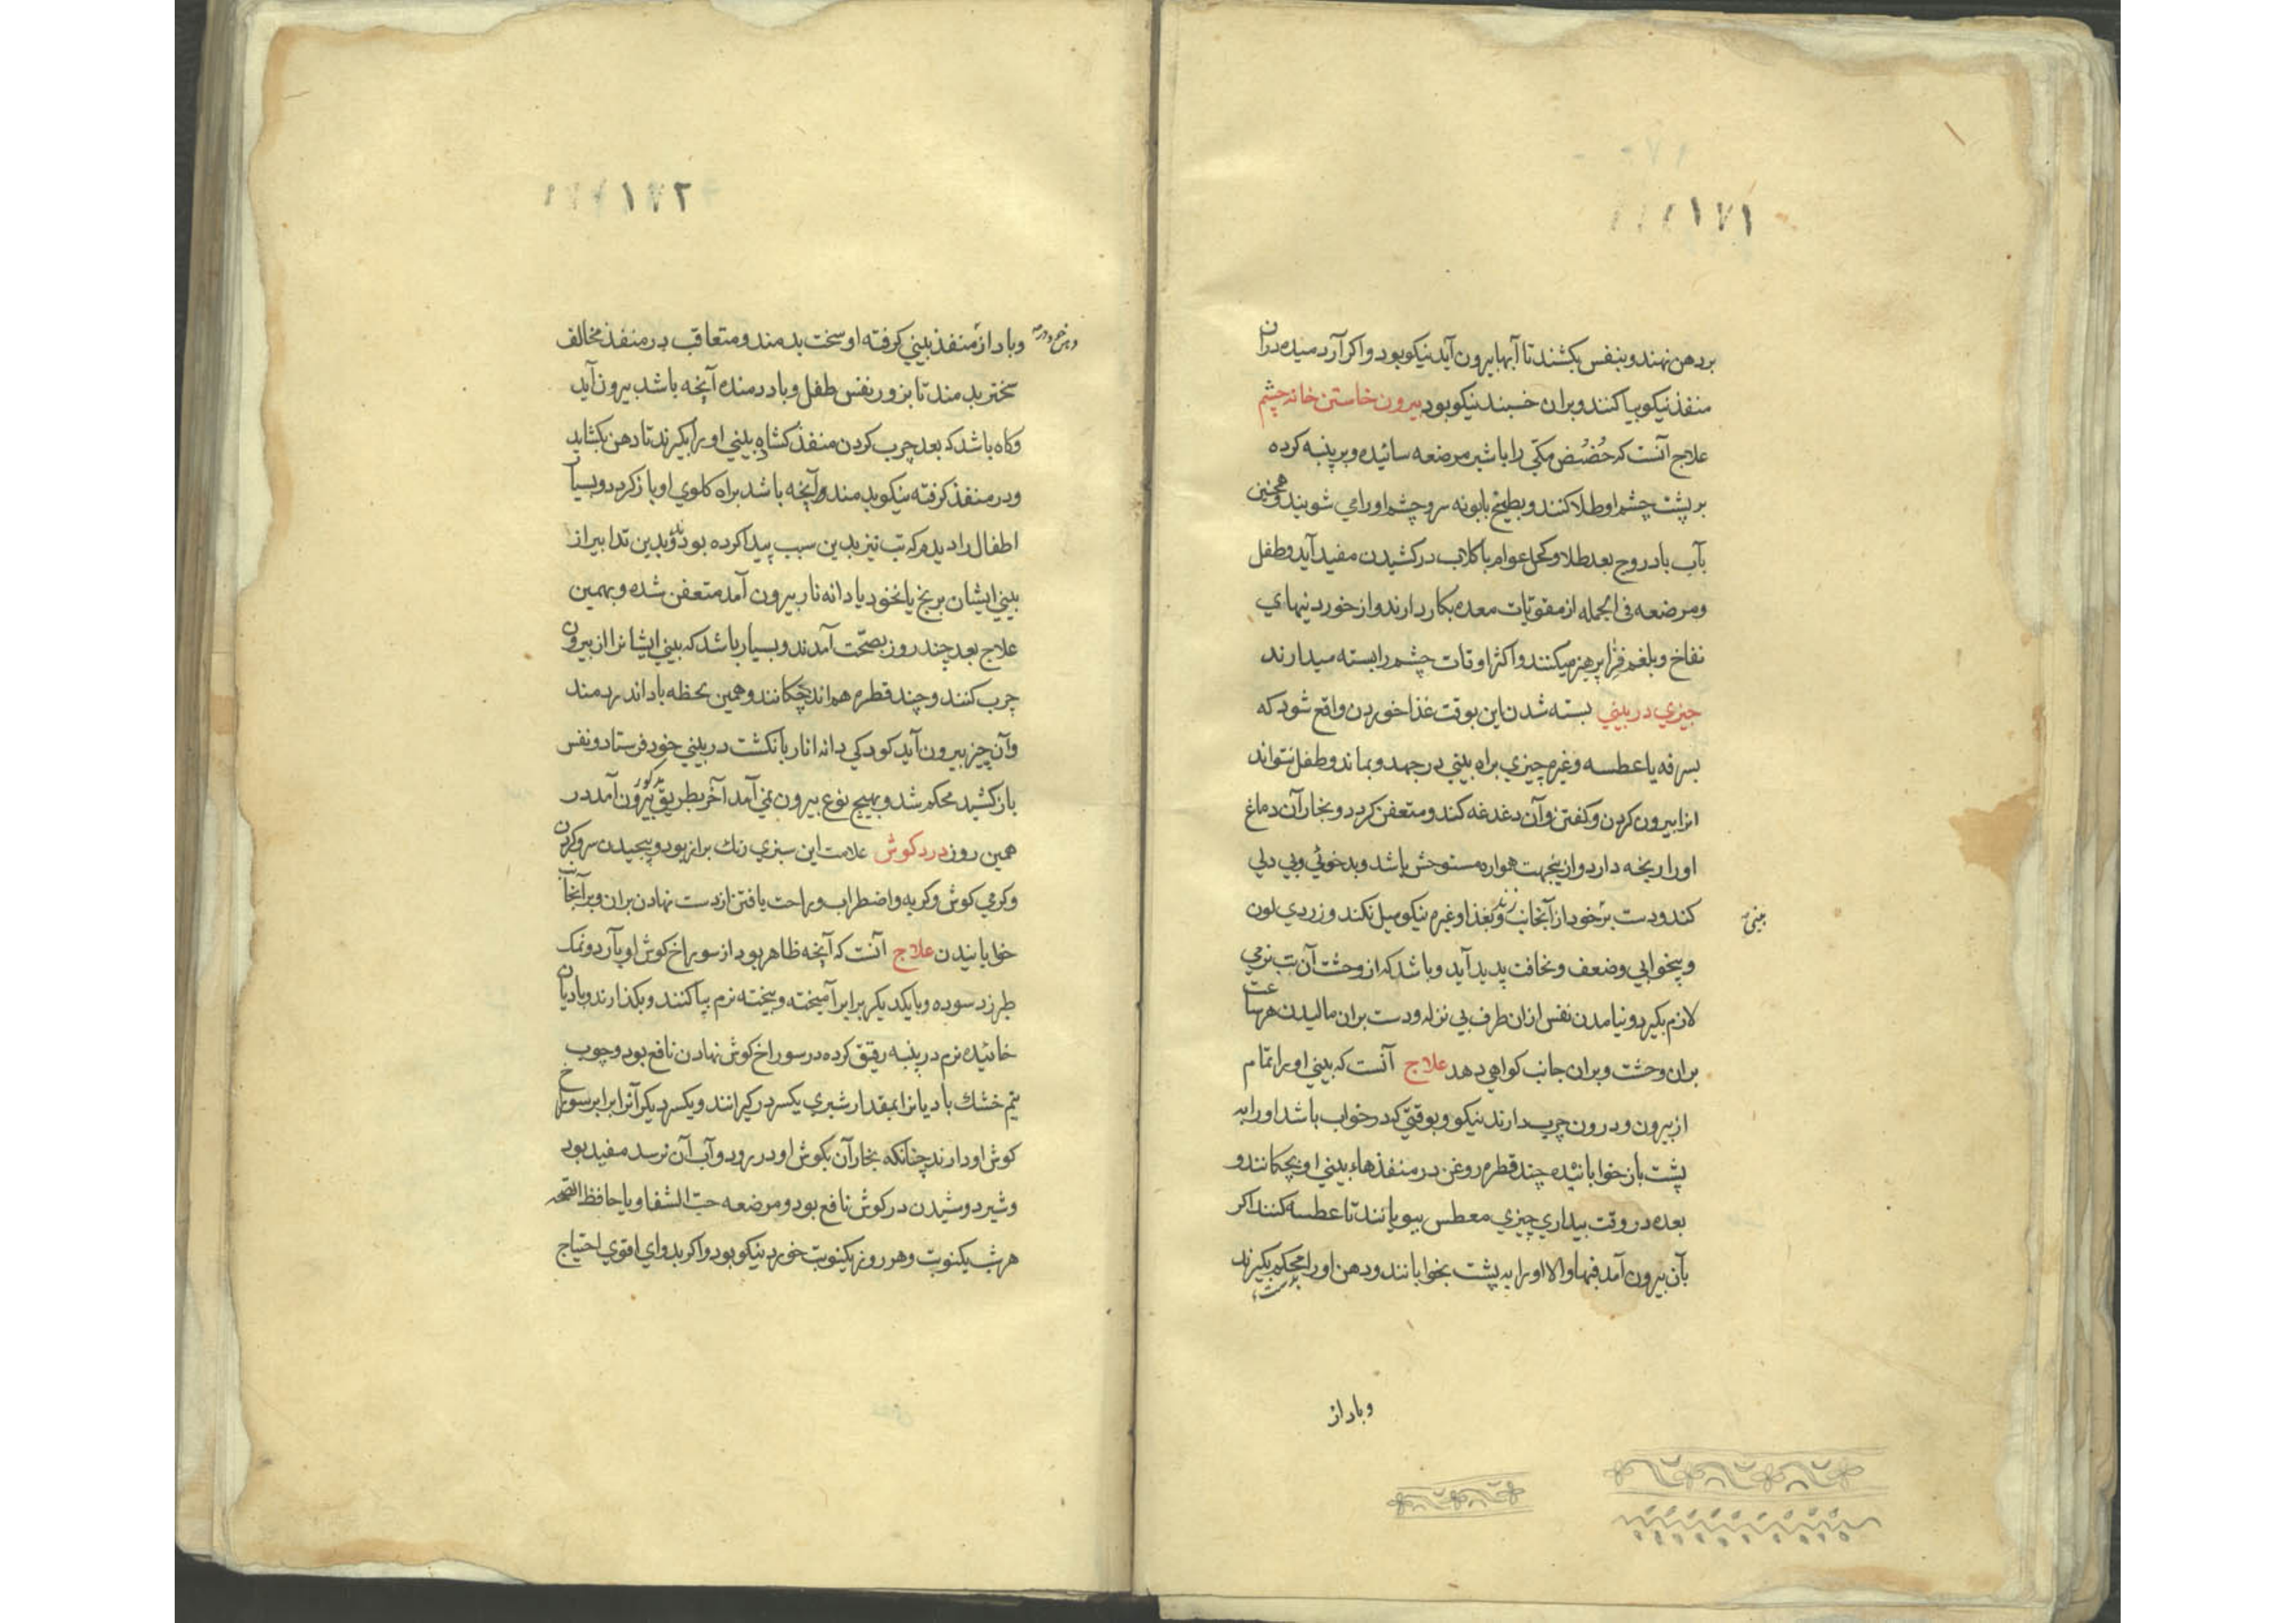 ۱۷۱
بر دهن نهند و بنفس بکشند تا آبها بیرون آید نیکو بود و اکر آرد میده دران
منفذ نیکو بیاکنند و بران خسبند نیکو بود بیرون خاستن خانه چشم
علاج آنست که حُضُض مکّی را باشیر مرضعه سائیده و بر پنبه کرده
بر پشت چشم او طلا کنند و بطبیخ بابونه سر و چشم او را می شویند و همچنین
بآب بادروج بعد طلا و کحل عوام با کلاب در کشیدن مفید آید و طفل
و مرضعه فی الجمله از مقویات معده بکار دارند و از خوردنیهای
نفاخ و بلغم فزا پرهیز میکنند و اکثر اوقات چشم را بسته میدارند
چیزی در بینی بسته شدن این بوقت غذا خوردن واقع شود که
بسرفه یا عطسه و غیره چیزی براه بینی در جهد و بماند و طفل نتواند
انرا بیرون کردن و کفتن و آن دغدغه کند و متعفن کردد و بخار آن دماغ
او را ریخه دارد و ازینجهت همواره مستوحش باشد و بدخوئی و بی دلی
کند و دست بر خود از آنجانب زند و بغذا و غیره نیکو میل نکند و زردی لون
بینی
و بیخوابی و ضعف و نحافت پدید آید و باشد که از وحشت آن تب نرمی
لازم بکیرد و نیامدن نفس ازان طرف بی نزله و دست بران مالیدن هر ساعت
بران وحشت و بران جانب کواهی دهد علاج آنست که بینی او را تمام
از بیرون و درون چرب دارند نیکو و بوقتی که در خواب باشد او را به
پشت باز خوابانیده چند قطره روغن در منفذهاء بینی او بچکانند و
بعده در وقت بیداری چیزی معطس ببویانند تا عطسه کند اکر
بآن بیرون آمد فبها و الا او را به پشت بخوابانند و دهن او را محکم بکیرند
بدست
و باد از
۱۷۲
و باد از منفذ بینی کرفته او سخت بدمند و متعاقب در منفذ مخالف
سختر بدمند تا بزور نفس طفل و باد دمنده آنچه باشد بیرون آید
و کاه باشد که بعد چرب کردن منفذ کشاده بینی او را بکیرند تا دهن بکشاید
و در منفذ کرفته نیکو بدمند و آنچه باشد براه کلوی او باز کردد و بسیا
اطفال را دیدم که تب نیز بدین سبب پیدا کرده بودند و بدین تدابیر از
بینی ایشان برنج یا نخود یا دانه نار بیرون آمد متعفن شده و بهمین
علاج بعد چند روز بصحّت آمدند و بسیار باشد که بینی ایشانرا از بیرون
چرب کنند و چند قطره هم اندر چکانند و همین لحظه باد اندر دمند
و آن چیز بیرون آید کودکی دانه انار بانکشت در بینی خود فرستاد و نفس
باز کشید محکم شد و بهیچ نوع بیرون نمی آمد آخر بطریق مذکور بیرون آمد در
همین روز درد کوش علامت این سبزی رنک براز بود و پیچیدن سر و کردن
و کرمی کوش و کریه و اضطراب و راحت یافتن از دست نهادن بران و بر آنجانب
خوابانیدن علاج آنست که آنچه ظاهر بود از سوراخ کوش او بآرد و نمک
طبرزد سوده و بایکدیکر برابر آمیخته و بیخته نرم بیاکنند و بکذارند و بادیان
خائیده نرم در پنبه رقیق کرده در سوراخ کوش نهادن نافع بود و چوب
نیم خشک بادیانرا بمقدار شبری یکسر در کیرانند و یکسر دیکر آنرا برابر سوراخ
کوش او دارند چنانکه بخار آن بکوش او در رود و آب آن نرسد مفید بود
و شیر دوشیدن در کوش نافع بود و مرضعه حبّ الشفا و یا حافظ الصّحه
هر شب یکنوبت و هر روز یکنوبت خورد نیکو بود و اکر بدوای اقوی احتیاج